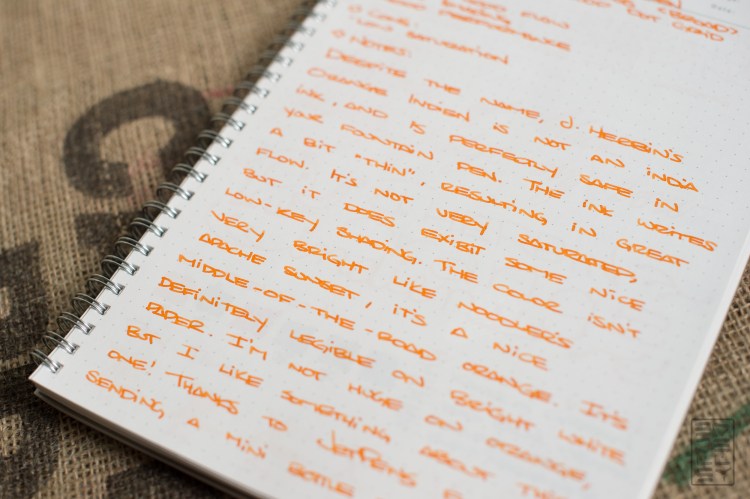 GOOD FLOW
PERFORMANCE
CONS:
LOW SATURATION
NOTES:
DESPITE THE NAME, J. HERBIN'S
ORANGE INDIEN IS NOT AN INDIA
INK, AND IS PERFECTLY SAFE IN
YOUR FOUNTAIN PEN. THE INK WRITES
A BIT "THIN", RESULTING IN GREAT
FLOW. IT'S NOT VERY SATURATED,
BUT IT DOES EXIBIT SOME NICE
LOW-KEY SHADING. THE COLOR ISN'T
VERY BRIGHT LIKE NOODLER'S
APACHE SUNSET, IT'S A NICE
MIDDLE-OF-THE-ROAD ORANGE. IT'S
DEFINITELY LEGIBLE ON BRIGHT WHITE
PAPER. I'M NOT HUGE ON ORANGE,
BUT I LIKE SOMETHING ABOUT THIS
ONE! THANKS TO JETPENS
SENDING A MINI BOTTLE